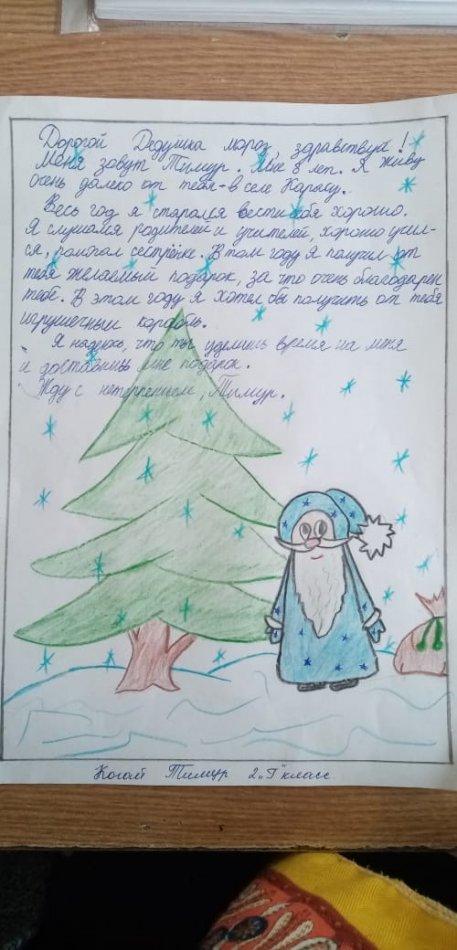 Дорогой Дедушка мороз, здравствуй!
Меня зовут Тимур. Мне 8 лет. Я живу
очень далеко от тебя-в селе Карасу.
Весь год я старался вести себя хорошо.
Я слушался родителей и учителей, хорошо учил-
ся, помогал сестрёнке. В том году я получил от
тебя желаемый подарок, за что очень благодарен
тебе. В этом году я хотел бы получить от тебя
игрушечный корабль.
Я надеюсь, что ты уделишь время на меня
и доставишь мне подарок.
Жду с нетерпением, Тимур.
Когай Тимур 2 "Г" класс